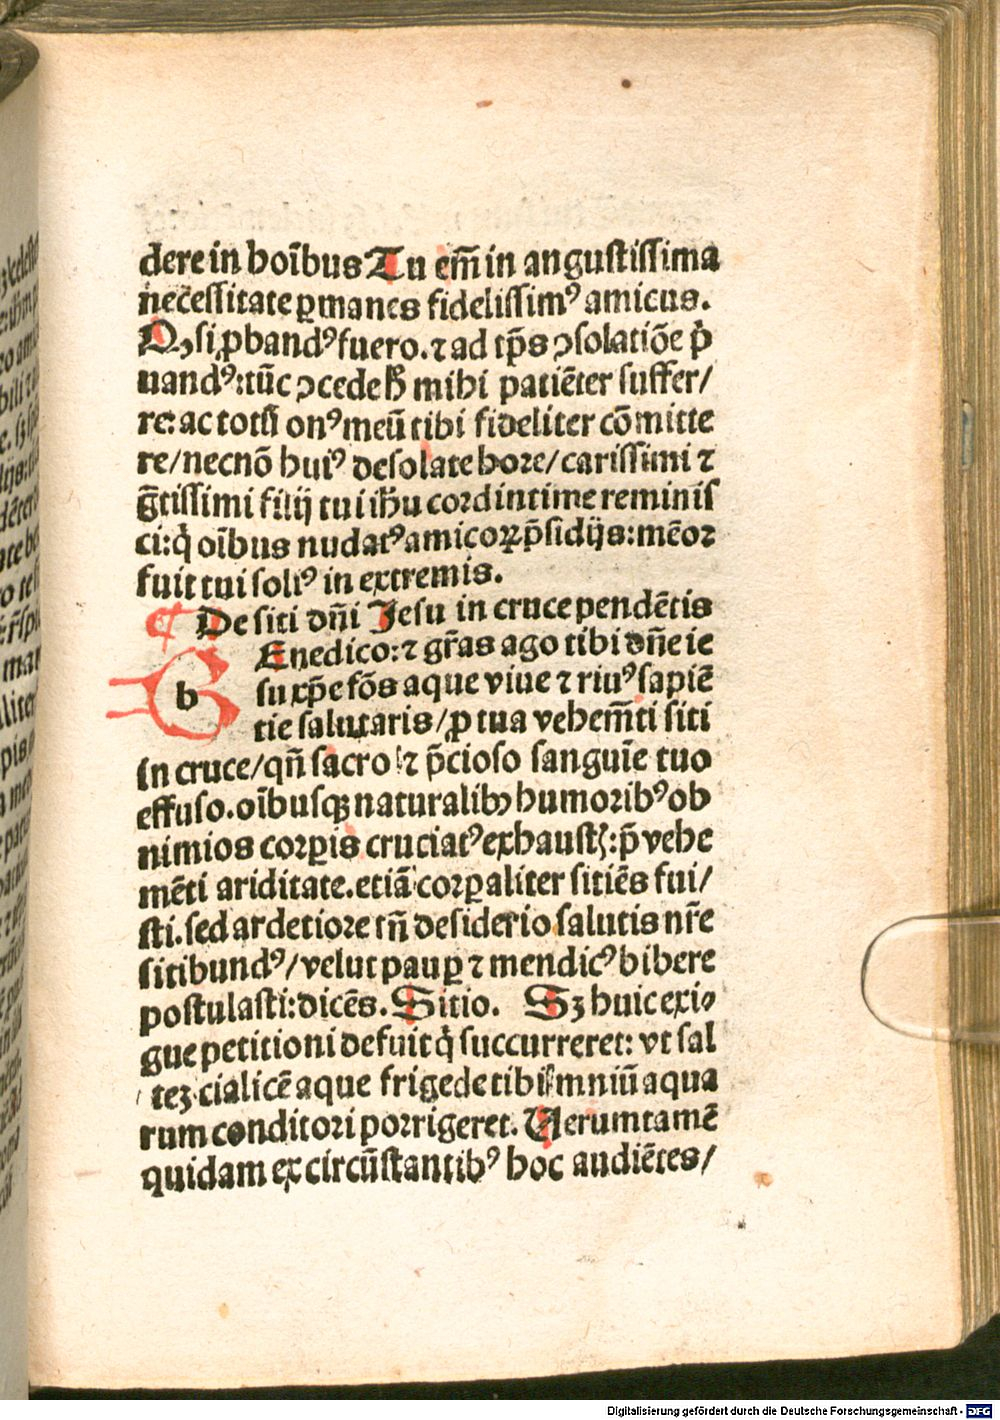 dere in hoı̃bus Tu em̃ in angustissima
necessitate ꝑmanes fidelissimꝰ amicus.
Qꝫ si ꝓbandꝰ fuero. ⁊ ad tp̃s ↄsolatiõe p̃
uandꝰ: tũc ↄcede h̃ mihi patiẽter suffer/
re: ac totũ onꝰ meũ tibi fideliter cõmitte
re/necnõ huiꝰ desolate hore/carissimi ⁊
g̃tissimi filij tui ih̃u cordintime reminis
ci: q̇ oı̃bus nudatꝰ amicoꝝ p̃sidijs: mẽor
fuit tui soliꝰ in extremis.
¶ De siti dñi Jesu in cruce pendẽtis
b Enedico: ⁊ gr̃as ago tibi dñe ie
su xp̃e fõs aque viue ⁊ riuꝰ sapiẽ
tie salutaris/ꝓ tua vehem̃ti siti
in cruce/qñ sacro ⁊ p̃cioso sanguı̃e tuo
effuso. oı̃busqꝫ naturalibꝫ humoribꝰ ob
nimios corꝑis cruciatꝰ exhaustꝰ: p̃ vehe
mẽti ariditate. etiã corꝑaliter sitiẽs fui/
sti. sed ardetiore tñ desiderio salutis nr̃e
sitibundꝰ/velut pauꝑ ⁊ mendicꝰ bibere
postulasti: dicẽs. Sitio. Sꝫ huic exi⸗
gue petitioni defuit q̇ succurreret: vt sal
teꝫ cialicẽ aque frigede tibi mniũ aqua
rum conditori porrigeret. Uerumtamẽ
quidam ex circũstantibꝰ hoc audiẽtes/
Digitalisierung gefördert durch die Deutsche Forschungsgemeinschaft - DFG